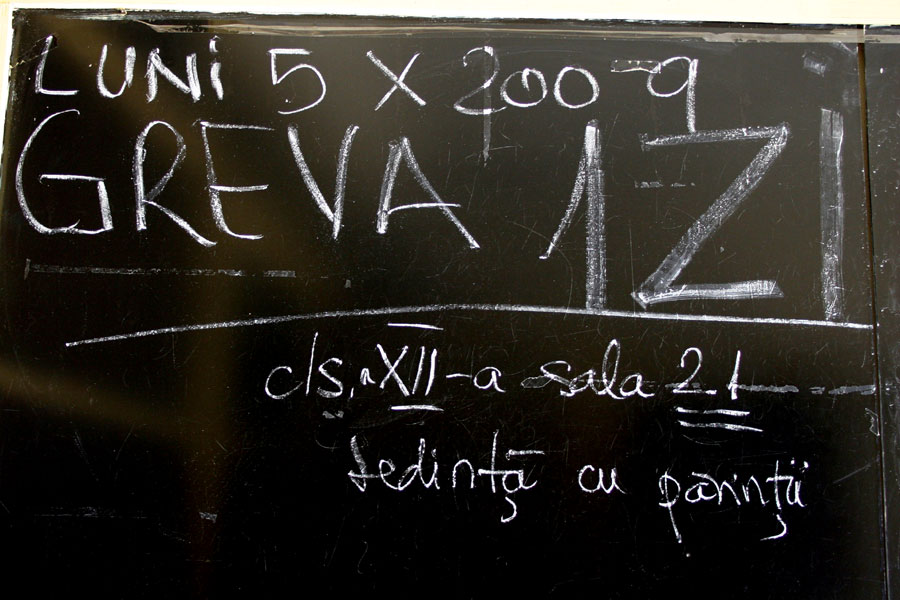 LUNI 5 X 2009
GREVA 1ZI
cls. XII-a sala 21
sedință cu părinții